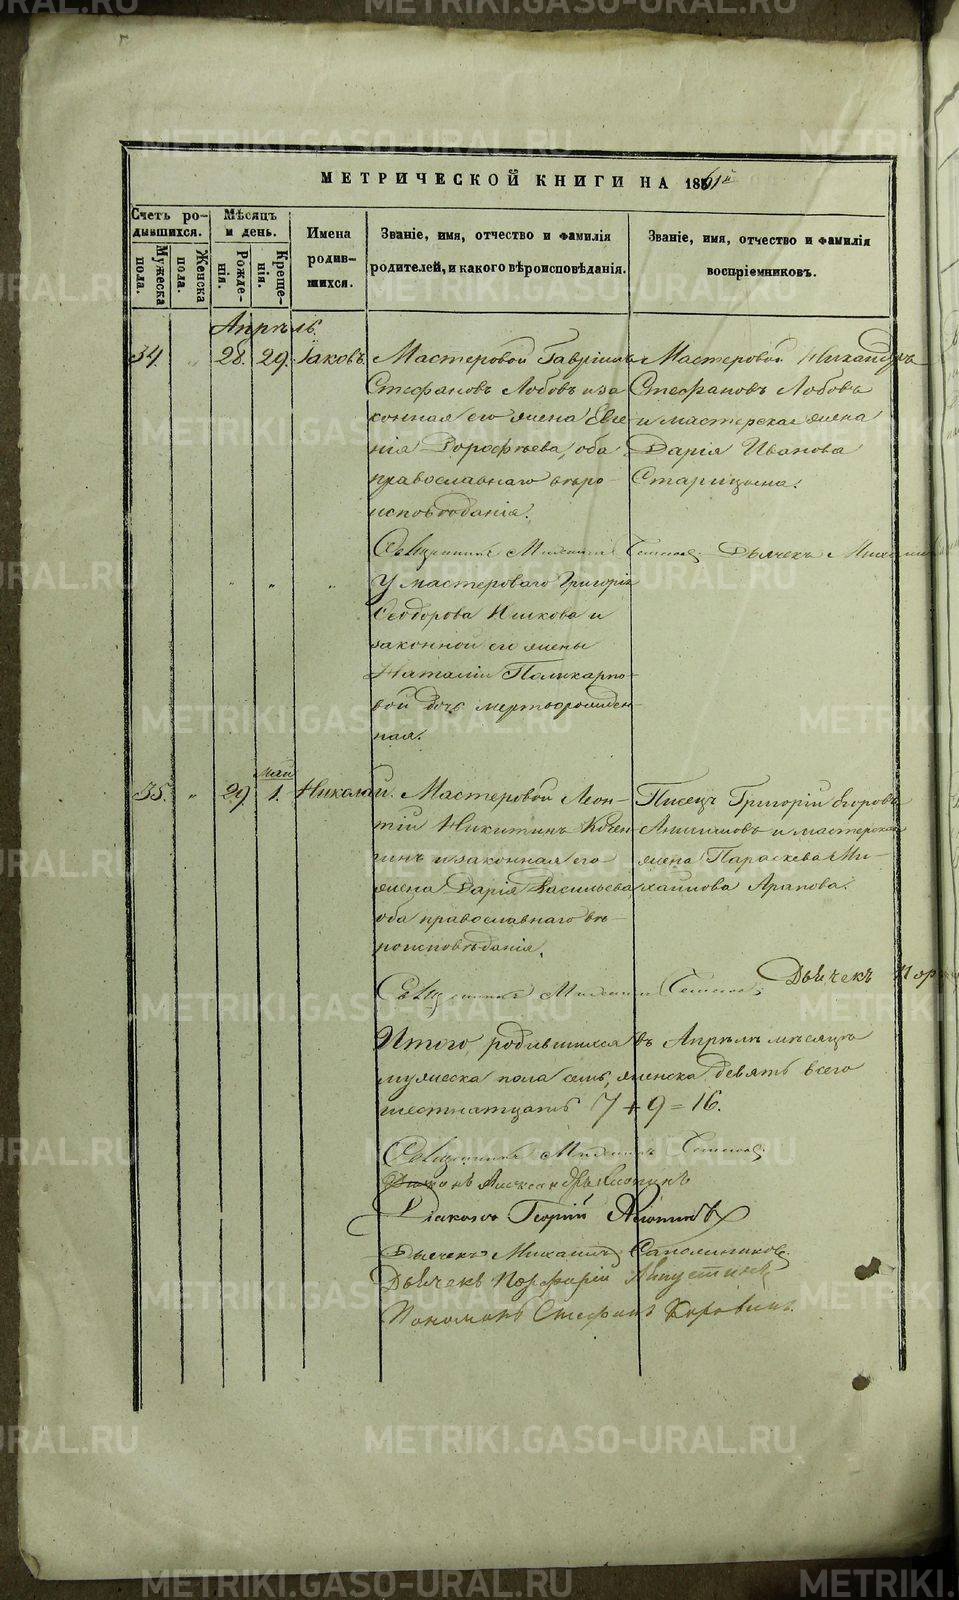 METRIKI.GASO-URAL.RU
МЕТРИЧЕСКОЙ КНИГИ НА 1861й
Счетъ ро-
дывшихся.
Мужеска пола.
Женска пола.
Мѣсяцъ
и день.
Рожде-
нія.
Креще-
нія.
Имена
родив-
шихся.
Званіе, имя, отчество и фамилія
родителей, и какого вѣроисповѣданія.
Званіе, имя, отчество и фамилія
воспріемниковъ.
Апрѣль.
34. " 28. 29. Іаковъ. Мастеровой Гавріилъ
Стефановъ Лобовъ и за
конная его жена Евге
нія Дорофѣева, оба
православнаго вѣро-
исповѣданія.
Мастеровой Никандръ
Стефановъ Лобовъ
и мастерская жена
Дарія Иванова
Старицына.
Священникъ Михаилъ Дьячекъ Михаилъ
" " " У мастероваго Григорія
Ѳеодорова и
законной его жены
Наталіи Поликарпо-
вой дочь мертворожден-
ная.
Май
35. " 29 1. Николай. Мастеровой Леон-
тій Никитинъ
и законная его
жена Дарія Васильева,
оба православнаго вѣ-
роисповѣданія.
Писецъ Григорій Егоровъ
и мастерская
жена Параскева Ми-
хаилова Арапова.
Священникъ Михаилъ Дьячекъ Пор
Итого родившихся въ Апрѣлѣ мѣсяцѣ
мужеска пола семь, женска девять всего
шестнатцать 7 + 9 = 16.
Священникъ Михаилъ
Александръ
Діаконъ Георгій
Дьячекъ Михаилъ Сапожниковъ.
Дьячекъ Порфирій Августинъ
Пономарь Стефанъ Коровинъ.